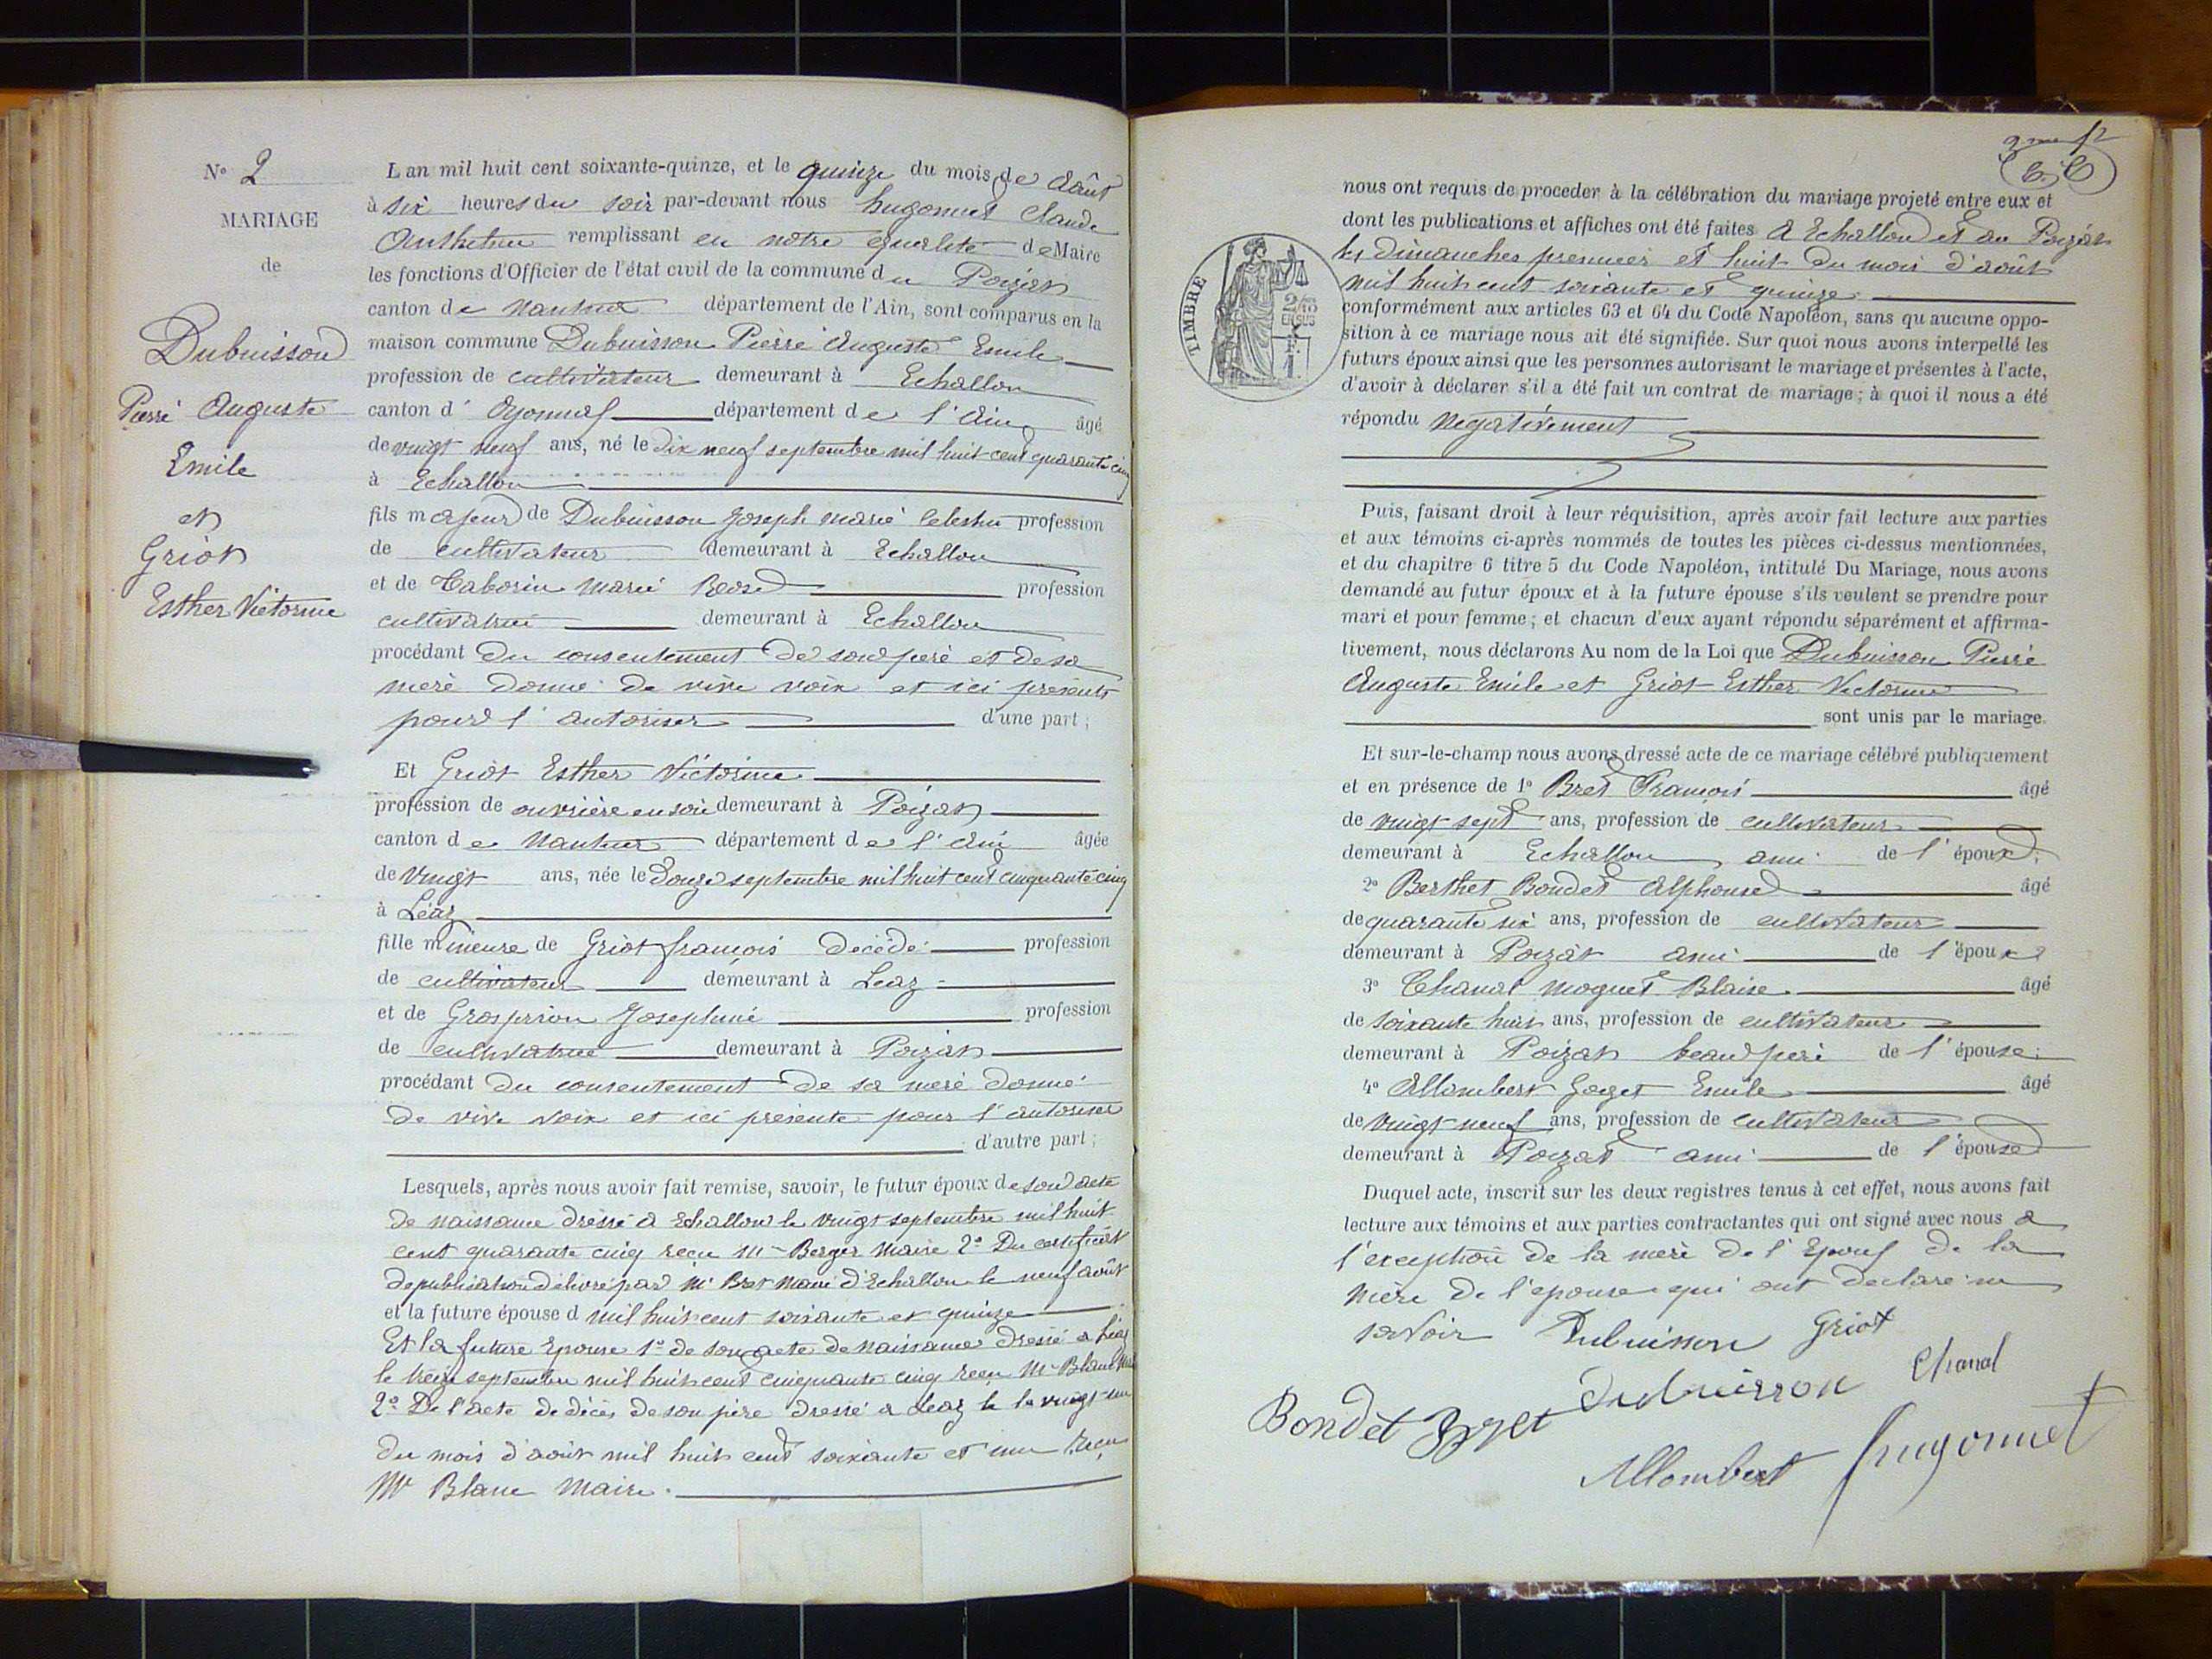 N° 2
MARIAGE
de
Dubuisson
Pierre Auguste
Emile
et
Griot
Esther Victorine
L'an mil huit cent soixante-quinze, et le quinze du mois de Août
à six heures du soir par-devant nous hugonnet Claude
Anthelme remplissant en notre qualité de Maire
les fonctions d'Officier de l'état civil de la commune du Poizat
canton de Nantua département de l'Ain, sont comparus en la
maison commune Dubuisson Pierre Auguste Emile
profession de cultivateur demeurant à Echallon
canton d' Oyonnax département de l'Ain âgé
de vingt neuf ans, né le dix neuf septembre mil huit cent quarante cinq
à Echallon
fils majeur de Dubuisson Joseph marie Celestin profession
de cultivateur demeurant à Echallon
et de Taborin Marie Rose profession
cultivatrice demeurant à Echallon
procédant du consentement de son père et de sa
mère donné de vive voix et ici présents
pour l'autoriser d'une part ;
Et Griot Esther Victorine
profession de ouvrière en soie demeurant à Poizat
canton de Nantua département de l'Ain âgée
de vingt ans, née le douze septembre mil huit cent cinquante cinq
à Léaz
fille mineure de Griot françois décédé profession
de cultivateur demeurant à Leaz
et de Grosperrin Josephine profession
de cultivatrice demeurant à Poizat
procédant du consentement de sa mère donné
de vive voix et ici présente pour l'autoriser
d'autre part ;
Lesquels, après nous avoir fait remise, savoir, le futur époux de son acte
de naissance dressé à Echallon le vingt septembre mil huit
cent quarante cinq reçu Mr Berger Maire 2° Du certificat
de publication délivré par Mr Bret Maire d'Echallon le neuf août
et la future épouse d mil huit cent soixante et quinze
Et la future Epouse 1° de son acte de naissance dressé à Léaz
le treize septembre mil huit cent cinquante cinq reçu Mr Blanc
2° De l'acte de décès de son père dressé à Leaz le le vingt un
du mois d'août mil huit cent soixante et un reçu
Mr Blanc Maire.
TIMBRE
nous ont requis de procéder à la célébration du mariage projeté entre eux et
dont les publications et affiches ont été faites à Echallon et au Poizat
les Dimanches premier et huit du mois d'août
mil huit cent soixante et quinze
conformément aux articles 63 et 64 du Code Napoléon, sans qu'aucune oppo-
sition à ce mariage nous ait été signifiée. Sur quoi nous avons interpellé les
futurs époux ainsi que les personnes autorisant le mariage et présentes à l'acte,
d'avoir à déclarer s'il a été fait un contrat de mariage ; à quoi il nous a été
répondu Négativement
Puis, faisant droit à leur réquisition, après avoir fait lecture aux parties
et aux témoins ci-après nommés de toutes les pièces ci-dessus mentionnées,
et du chapitre 6 titre 5 du Code Napoléon, intitulé Du Mariage, nous avons
demandé au futur époux et à la future épouse s'ils veulent se prendre pour
mari et pour femme ; et chacun d'eux ayant répondu séparément et affirma-
tivement, nous déclarons Au nom de la Loi que Dubuisson Pierre
Auguste Emile et Griot Esther Victorine
sont unis par le mariage.
Et sur-le-champ nous avons dressé acte de ce mariage célébré publiquement
et en présence de 1° Bret François âgé
de vingt sept ans, profession de cultivateur
demeurant à Echallon ami de l'époux;
2° Berthet Bondet Alphonse âgé
de quarante six ans, profession de cultivateur
demeurant à Poizat ami de l'époux
3° Chanal Moguet Blaise âgé
de soixante huit ans, profession de cultivateur
demeurant à Poizat beau père de l'épouse;
4° Allombert Goget Emile âgé
de vingt neuf ans, profession de cultivateur
demeurant à Poizat ami de l'épouse
Duquel acte, inscrit sur les deux registres tenus à cet effet, nous avons fait
lecture aux témoins et aux parties contractantes qui ont signé avec nous a
l'exception de la mère de l'Epoux de la
mère de l'épouse qui ont déclaré ne
savoir Dubuisson Griot
Dubuisson Chanal
Bondet Bret
Allombert hugonnet